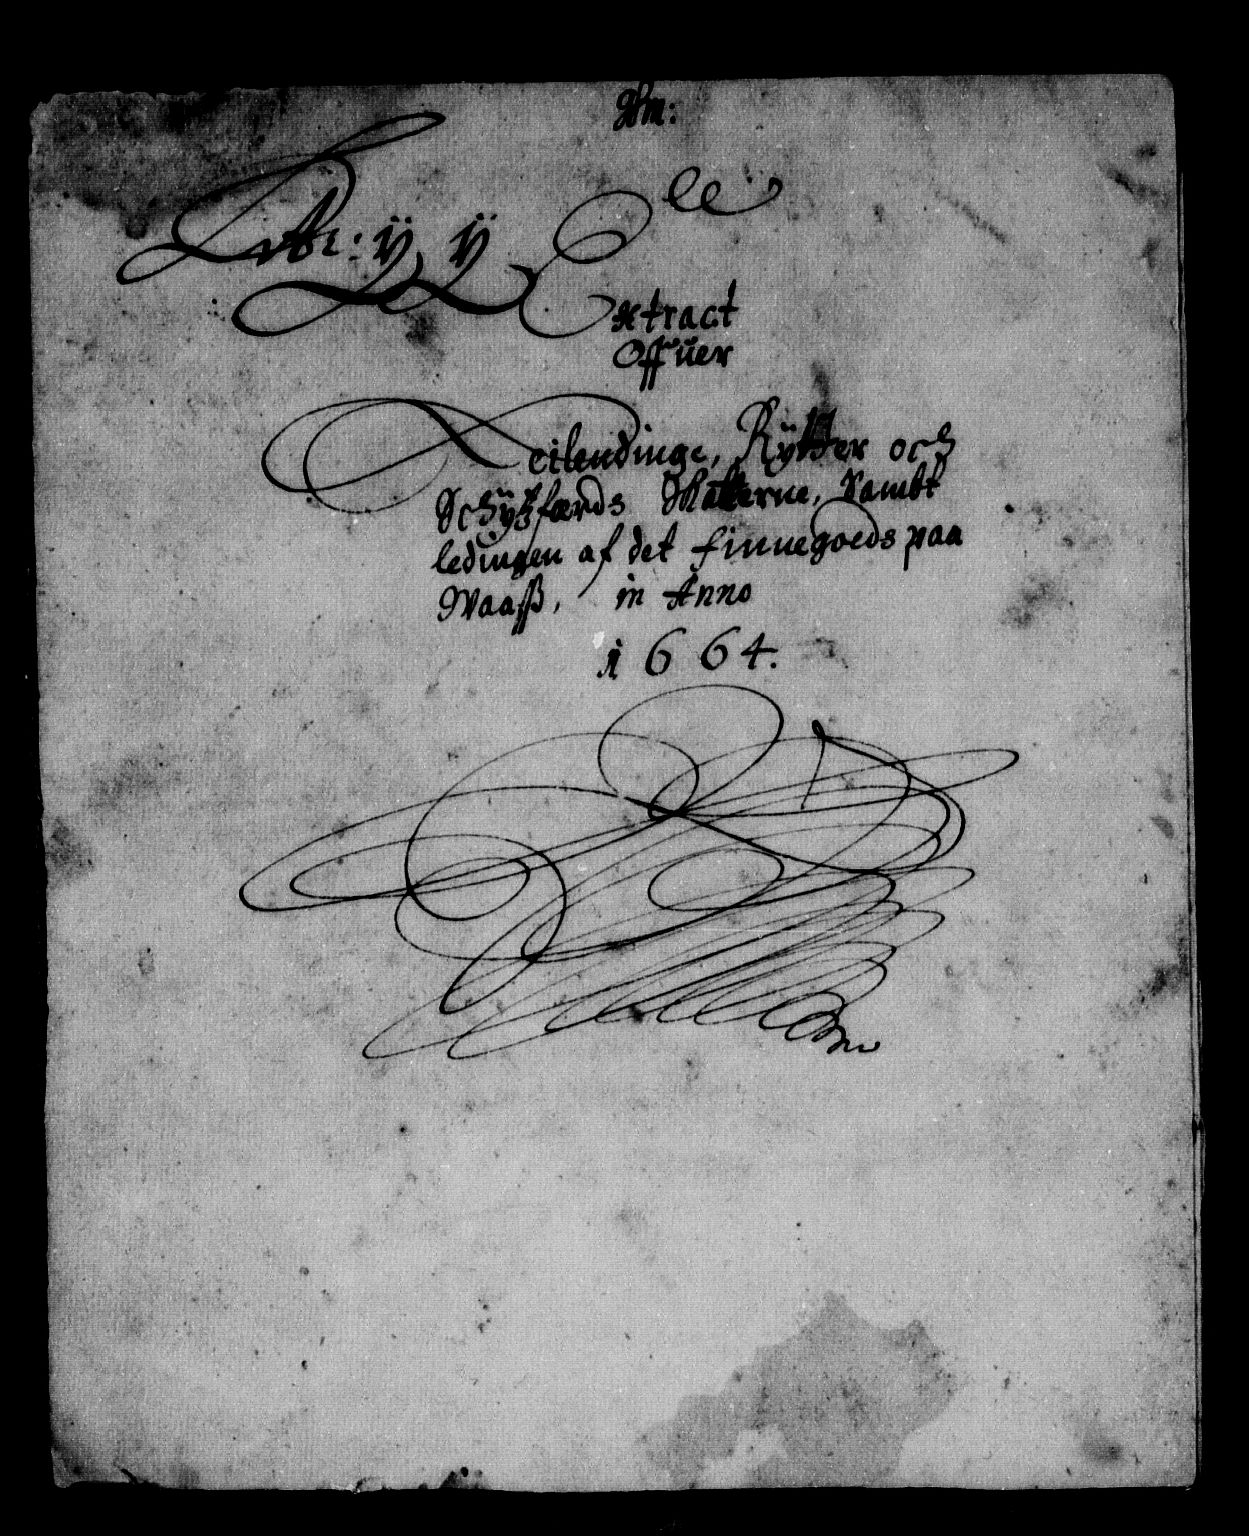 Litr: ÿ ÿ
Extract
Offuer
Leilendinge, Rÿtter och
Schÿtzfærds Skatterne, Sambt
ledingen af det finnegoeds paa
Waaß, in Anno
1664.